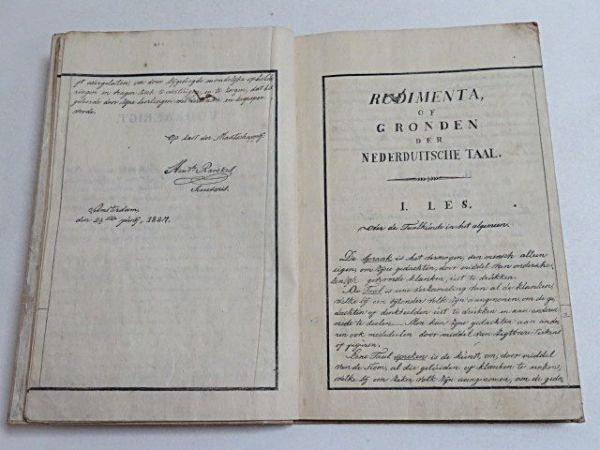 door bijgevoegde mondelijke ophelde-
ringen in dezen trek te verstrengen, en te zorgen, dat het
geleerde door zijne leerlingen wel verstaan en begrepen
worde.
Op last der Maatschappij
Secretaris.
Amsterdam,
den 23ste 1827.
RUDIMENTA,
OF
GRONDEN
DER
NEDERDUITSCHE TAAL.
I. LES.
over de Taalkunde in het algemeen.
De Spraak is het vermogen, den mensch alleen
eigen, om zijne gedachten, door middel van onderschei-
gevormde klanken, uit te drukken.
De Taal is eene verzameling van al de klanken,
welke bij een bijzonder volk zijn aangenomen, om de ge-
dachten of denkbeelden uit te drukken en aan anderen
mede te deelen. Men kan zijne gedachten aan ande-
ren ook mededeelen door middel van zigtbare teekens
of figuren.
Eene Taal spreken is de kunst, om, door middel
van de stem, al die geluiden of klanken te maken,
welke bij een zeker volk zijn aangenomen, om de gedach-